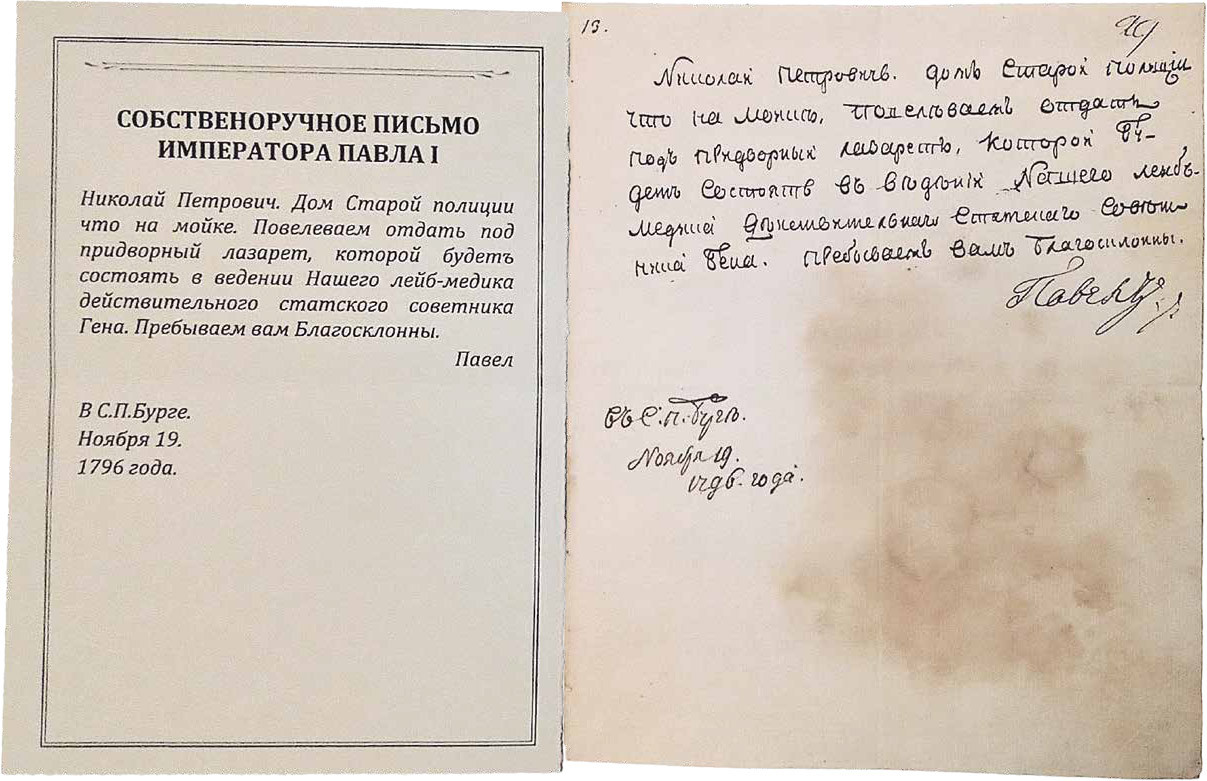 СОБСТВЕНОРУЧНОЕ ПИСЬМО
ИМПЕРАТОРА ПАВЛА I
Николай Петрович. Дом Старой полиции
что на мойке. Повелеваем отдать под
придворный лазарет, которой будетъ
состоять в ведении Нашего лейб-медика
действительного статского советника
Гена. Пребываем вам Благосклонны.
Павел
В С.П.Бурге.
Ноября 19.
1796 года.
13.
Николай Петровичъ. домъ Старой Полиціи
что на мойке, повелеваемъ отдать
подъ придворный лазаретъ, которой бу-
детъ состоять въ веденіи Нашего лейбъ-
медика действительнаго статскаго советн-
ника Гена. пребываемъ вамъ благосклонны.
Павелъ
въ С.п.бургъ.
Ноября 19.
1796. года.